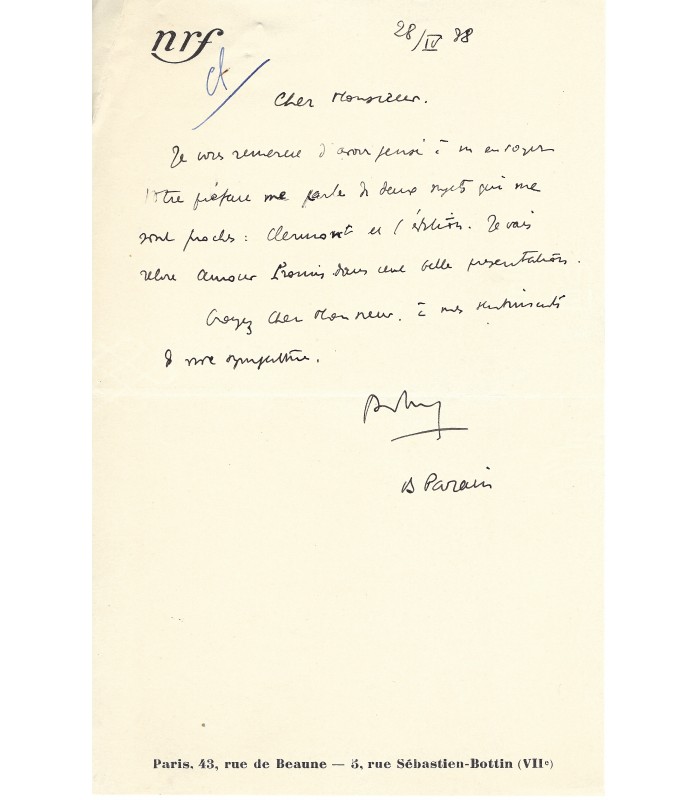 nrf
28/IV 38
Cher Monsieur.
Je vous remercie d'avoir pensé à m'envoyer
Votre préface me parle de deux sujets qui me
sont proches : Clermont et l'édition. Je vais
relire Amour Promis dans cette belle présentation.
Croyez Cher Monsieur, à mes sentiments
de vive sympathie.
B Parain
Paris, 43, rue de Beaune — 5, rue Sébastien-Bottin (VIIe)